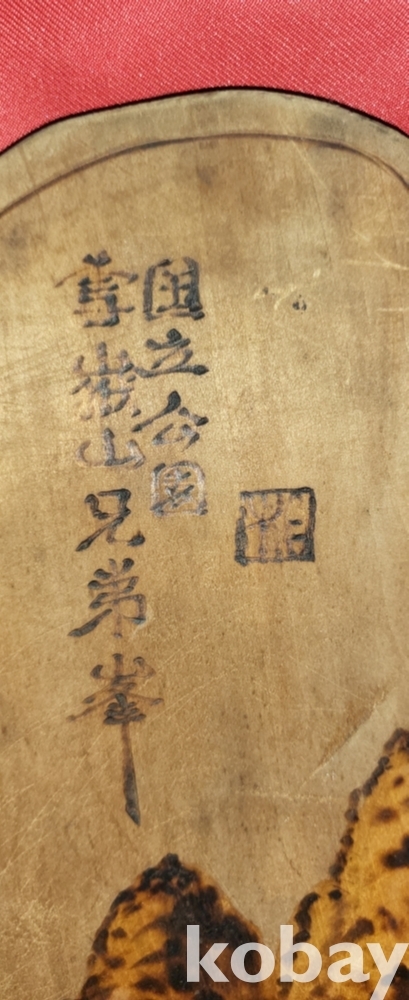 國立公園
雪嶽山兄弟峯
kobay